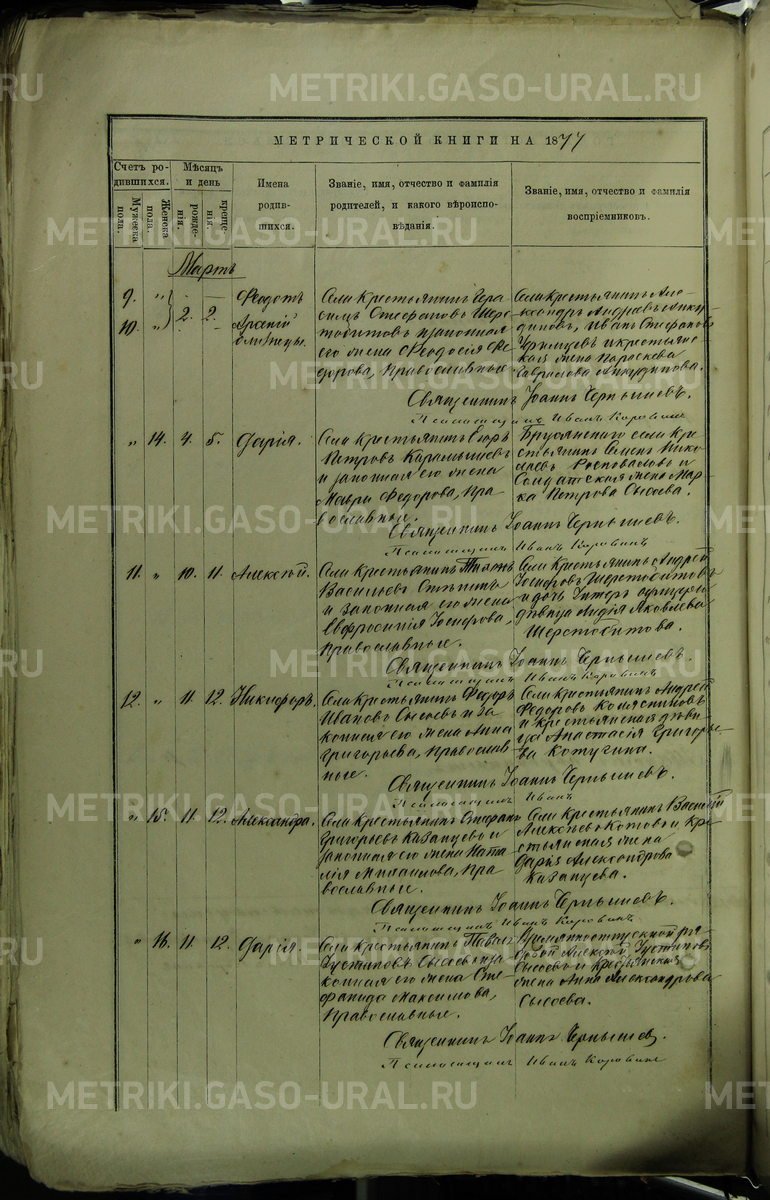 METRIKI.GASO-URAL.RU
МЕТРИЧЕСКОЙ КНИГИ НА 1877
Счетъ родившихся.
Мужеска пола.
Женска пола.
Мѣсяцъ и день
рожденія.
крещенія.
Имена родившихся.
Званіе, имя, отчество и фамилія родителей, и какого вѣроисповѣданія.
Званіе, имя, отчество и фамилія воспріемниковъ.
Мартъ
9. " 2. 2. Феодотъ
10. " Арсеній близнецы.
Села Крестьянинъ Герасимъ Стефановъ Шерстобитовъ и законная
его жена Феодосія Федорова, Православные
Села Крестьянинъ Александръ Андреевъ
Иванъ Стефановъ
и крестьянская жена Параскева
Гаврилова
Священникъ Іоаннъ Чернышевъ.
Псаломщикъ Иванъ Коровинъ
" 14. 4. 5. Дарія.
Села Крестьянинъ Егоръ
Петровъ Карамышевъ
и законная его жена
Мавра Федорова, Православные.
Бруснянского села Крестьянинъ Семенъ Николаевъ
и
Солдатская жена Марка Петрова Сысоева.
Священникъ Іоаннъ Чернышевъ.
Псаломщикъ Иванъ Коровинъ
11. " 10. 11. Алексѣй.
Села Крестьянинъ
Васильевъ
и законная его жена
Евфросинія Іосифова,
Православные.
Села Крестьянинъ Андрей
Іосифовъ Шерстобитовъ
и дочь Унтеръ офицера
дѣвица Лидія Яковлева
Шерстобитова.
Священникъ Іоаннъ Чернышевъ.
Псаломщикъ Иванъ Коровинъ
12. " 11. 12. Никифоръ.
Села Крестьянинъ Федоръ
Ивановъ Сысоевъ и законная его жена Анна
Григорьева, Православные.
Села Крестьянинъ Андрей
Федоровъ Колясниковъ
и крестьянская дѣвица Анастасія Григорьева Котугина.
Священникъ Іоаннъ Чернышевъ.
Псаломщикъ Иванъ
" 15. 11. 12. Александра.
Села Крестьянинъ Стефанъ
Григорьевъ Казанцевъ и
законная его жена Наталія Михаилова, Православные.
Села Крестьянинъ Василій
Алексѣевъ Котовъ и Крестьянская жена
Дарья Александрова
Казанцева.
Священникъ Іоаннъ Чернышевъ.
Псаломщикъ Иванъ Коровинъ
" 16. 11. 12. Дарія.
Села Крестьянинъ Павелъ
Густиновъ Сысоевъ и законная его жена Стефанида Максимова,
Православные.
Временноотпускной рядовой Алексѣй Густиновъ
Сысоевъ и Крестьянская
жена Анна Александрова
Сысоева.
Священникъ Іоаннъ Чернышевъ.
Псаломщикъ Иванъ Коровинъ